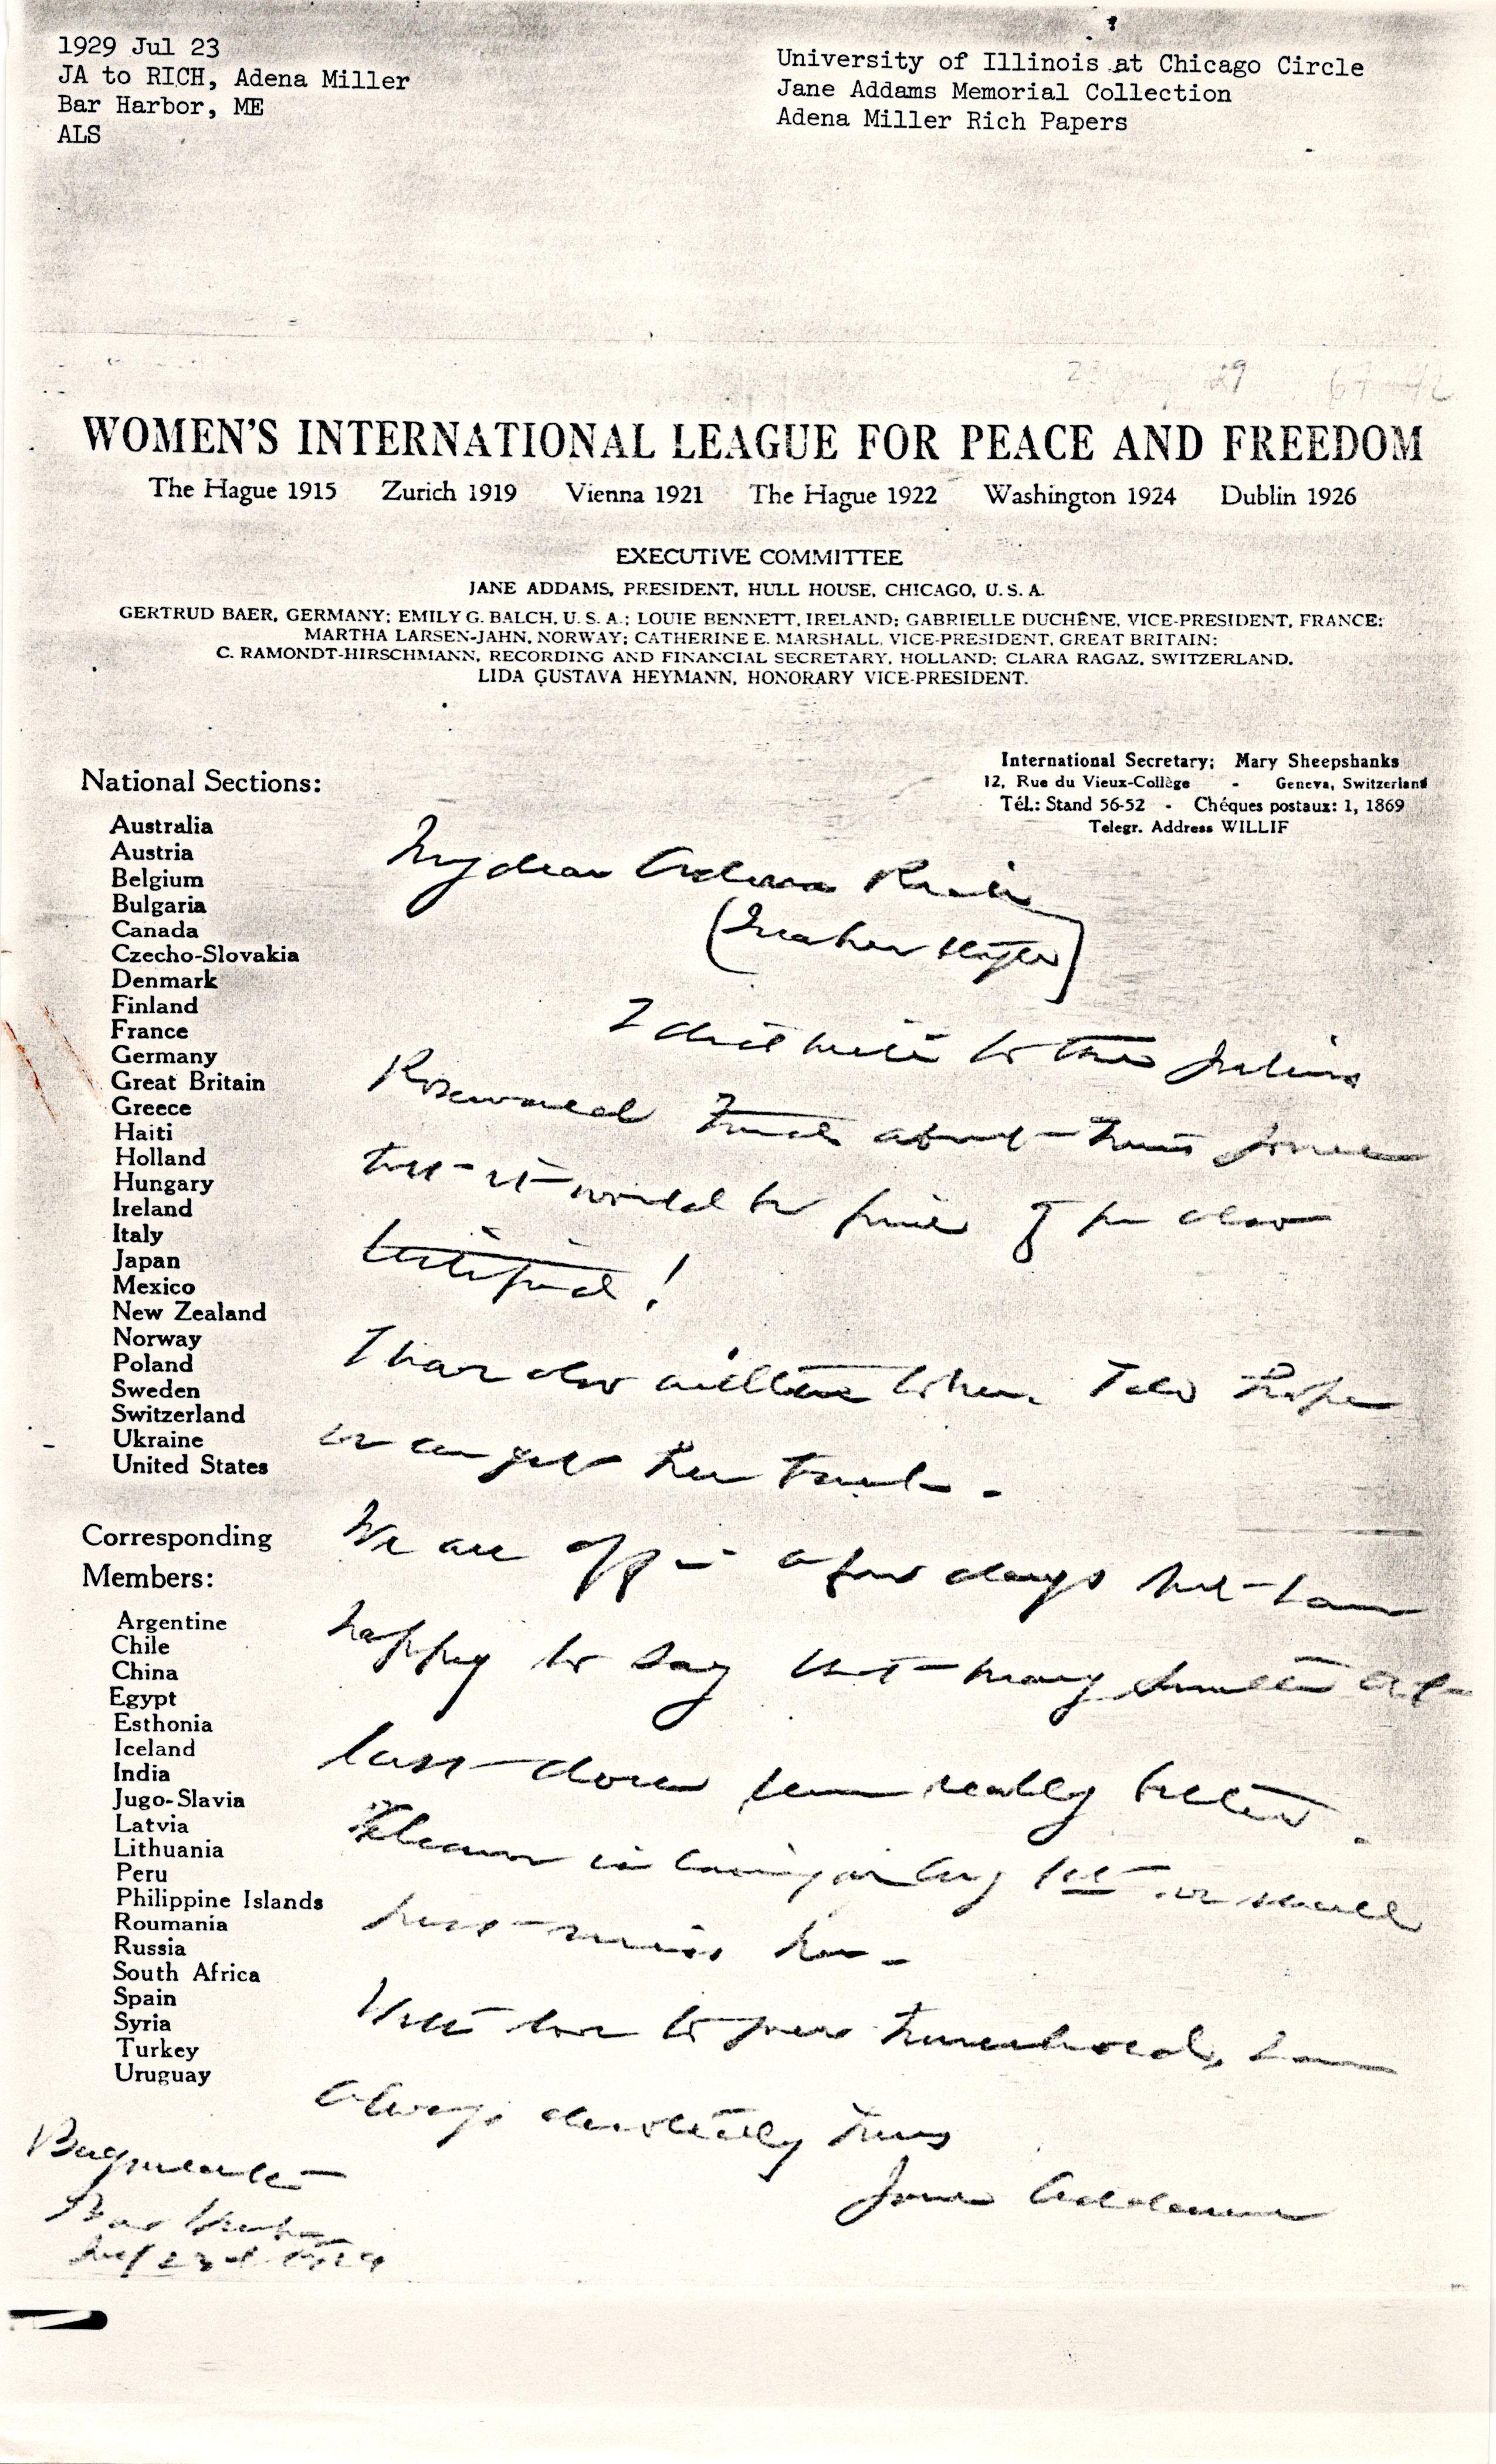 1929 Jul 23
JA to RICH, Adena Miller
Bar Harbor, ME
ALS
University of Illinois at Chicago Circle
Jane Addams Memorial Collection
Adena Miller Rich Papers
29
WOMEN'S INTERNATIONAL LEAGUE FOR PEACE AND FREEDOM
The Hague 1915 Zurich 1919 Vienna 1921 The Hague 1922 Washington 1924 Dublin 1926
EXECUTIVE COMMITTEE
JANE ADDAMS, PRESIDENT, HULL HOUSE, CHICAGO, U. S. A.
GERTRUD BAER, GERMANY; EMILY G. BALCH, U. S. A.; LOUIE BENNETT, IRELAND; GABRIELLE DUCHÊNE, VICE-PRESIDENT, FRANCE;
MARTHA LARSEN-JAHN, NORWAY; CATHERINE E. MARSHALL, VICE-PRESIDENT, GREAT BRITAIN;
C. RAMONDT-HIRSCHMANN, RECORDING AND FINANCIAL SECRETARY, HOLLAND; CLARA RAGAZ, SWITZERLAND.
LIDA GUSTAVA HEYMANN, HONORARY VICE-PRESIDENT.
International Secretary; Mary Sheepshanks
12, Rue du Vieux-Collège - Geneva, Switzerland
Tél.: Stand 56-52 - Chéques postaux: 1, 1869
Telegr. Address WILLIF
National Sections:
Australia
Austria
Belgium
Bulgaria
Canada
Czecho-Slovakia
Denmark
Finland
France
Germany
Great Britain
Greece
Haiti
Holland
Hungary
Ireland
Italy
Japan
Mexico
New Zealand
Norway
Poland
Sweden
Switzerland
Ukraine
United States
Corresponding
Members:
Argentine
Chile
China
Egypt
Esthonia
Iceland
India
Jugo-Slavia
Latvia
Lithuania
Peru
Philippine Islands
Roumania
Russia
South Africa
Spain
Syria
Turkey
Uruguay
My dear Adena Rich
I did write to the Julius
Rosenwald Fund about
but it would be fine if you also
testified!
I have also written to her. I do hope
we can get the fund.
We are off in a few days but I am
happy to say that Mary Smith at
last does seem really better.
Eleanor is leaving on Aug 1st. we shall
just miss her.
With love to your household, I am
always devotedly yours
Jane Addams
Baymeath
Bar Harbor
July 23d 1929